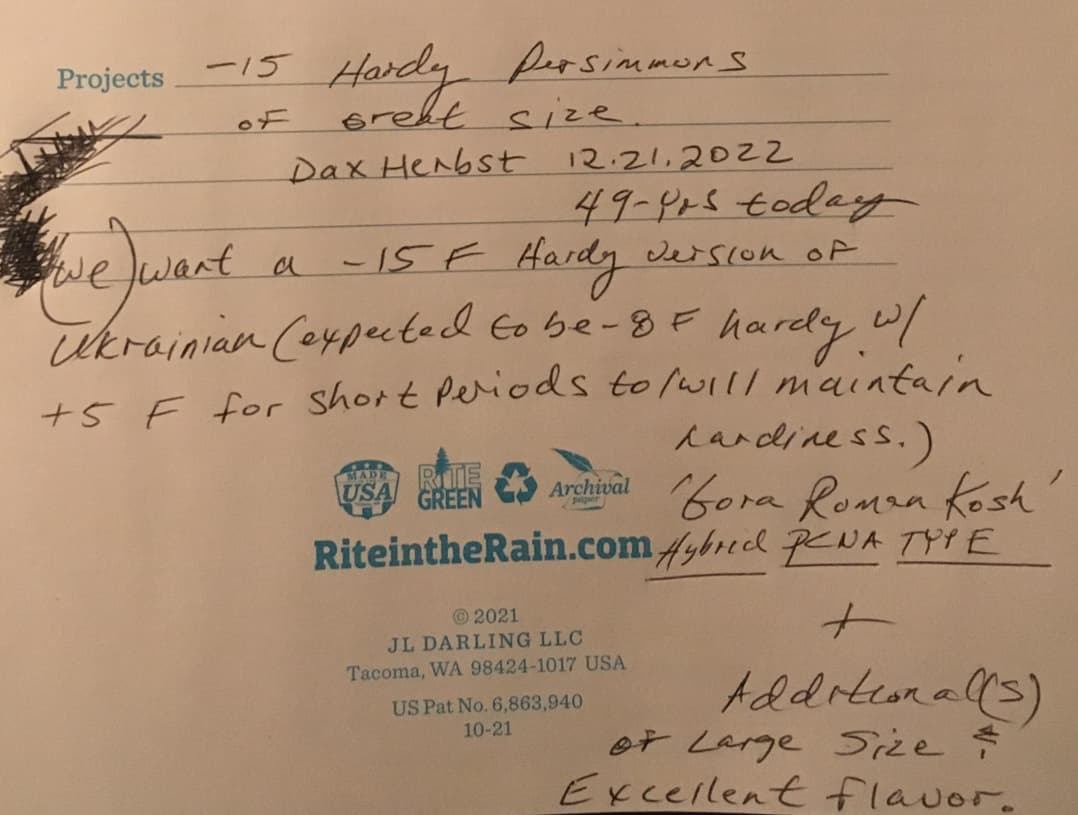 Projects -15 Hardy Persimmons
of Great size.
Dax Herbst 12.21.2022
49-yrs today
(we) want a -15 F Hardy version of
Ukrainian (expected to be -8 F hardy w/
+5 F for short periods to/will maintain
hardiness.)
MADE IN USA
RITE GREEN
Archival paper
'Gora Roman Kosh'
RiteintheRain.com
Hybrid PCNA TYPE
+
© 2021
JL DARLING LLC
Tacoma, WA 98424-1017 USA
US Pat No. 6,863,940
10-21
Additional(s)
of Large Size &
Excellent flavor.